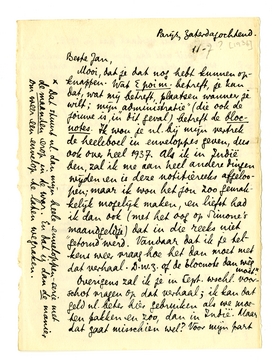 Parijs, Zaterdagochtend.
11-7-? [1936]
Beste Jan,
Mooi, dat je dat nog hebt kunnen op-
knappen. Wat Epoim. betreft, je kan
dat, wat mij betreft, plaatsen wanneer je
wilt; mijn „administratie” (die ook de
jouwe is, in dit geval) betreft de bloc-
notes. Ik wou je nl. bij mijn vertrek
de heeleboel in enveloppes geven, dus
ook one heel 1937. Als ik in Indië
ben, zal ik me aan heel andere dingen
wijden en is deze notitiereeks afgeloo-
pen; maar ik wou het jou zoo gemak-
kelijk mogelijk maken, en liefst had
ik dan ook (met het oog op Simone's
maandgeld) dat in die reeks niet
getornd werd. Vandaar dat ik je tel-
kens weer vraag hoe het dan moet met
dat verhaal. D.w.z. of de blocnote dan wijken
moet.
Overigens zal ik je in Sept. wschl. voor-
schot vragen op dat verhaal; ik kan dat
geld nl. hets hier gebruiken als we moe-
ten pakken en zoo, dan in Indië. Maar
dat gaat misschien wel? Voor mijn part
× Dat stuurt nl. dan mijn heele enveloppen-serie met
de maanden erop in de war. Er blijft dan de manier,
om weer een envelop te laten wegraken.